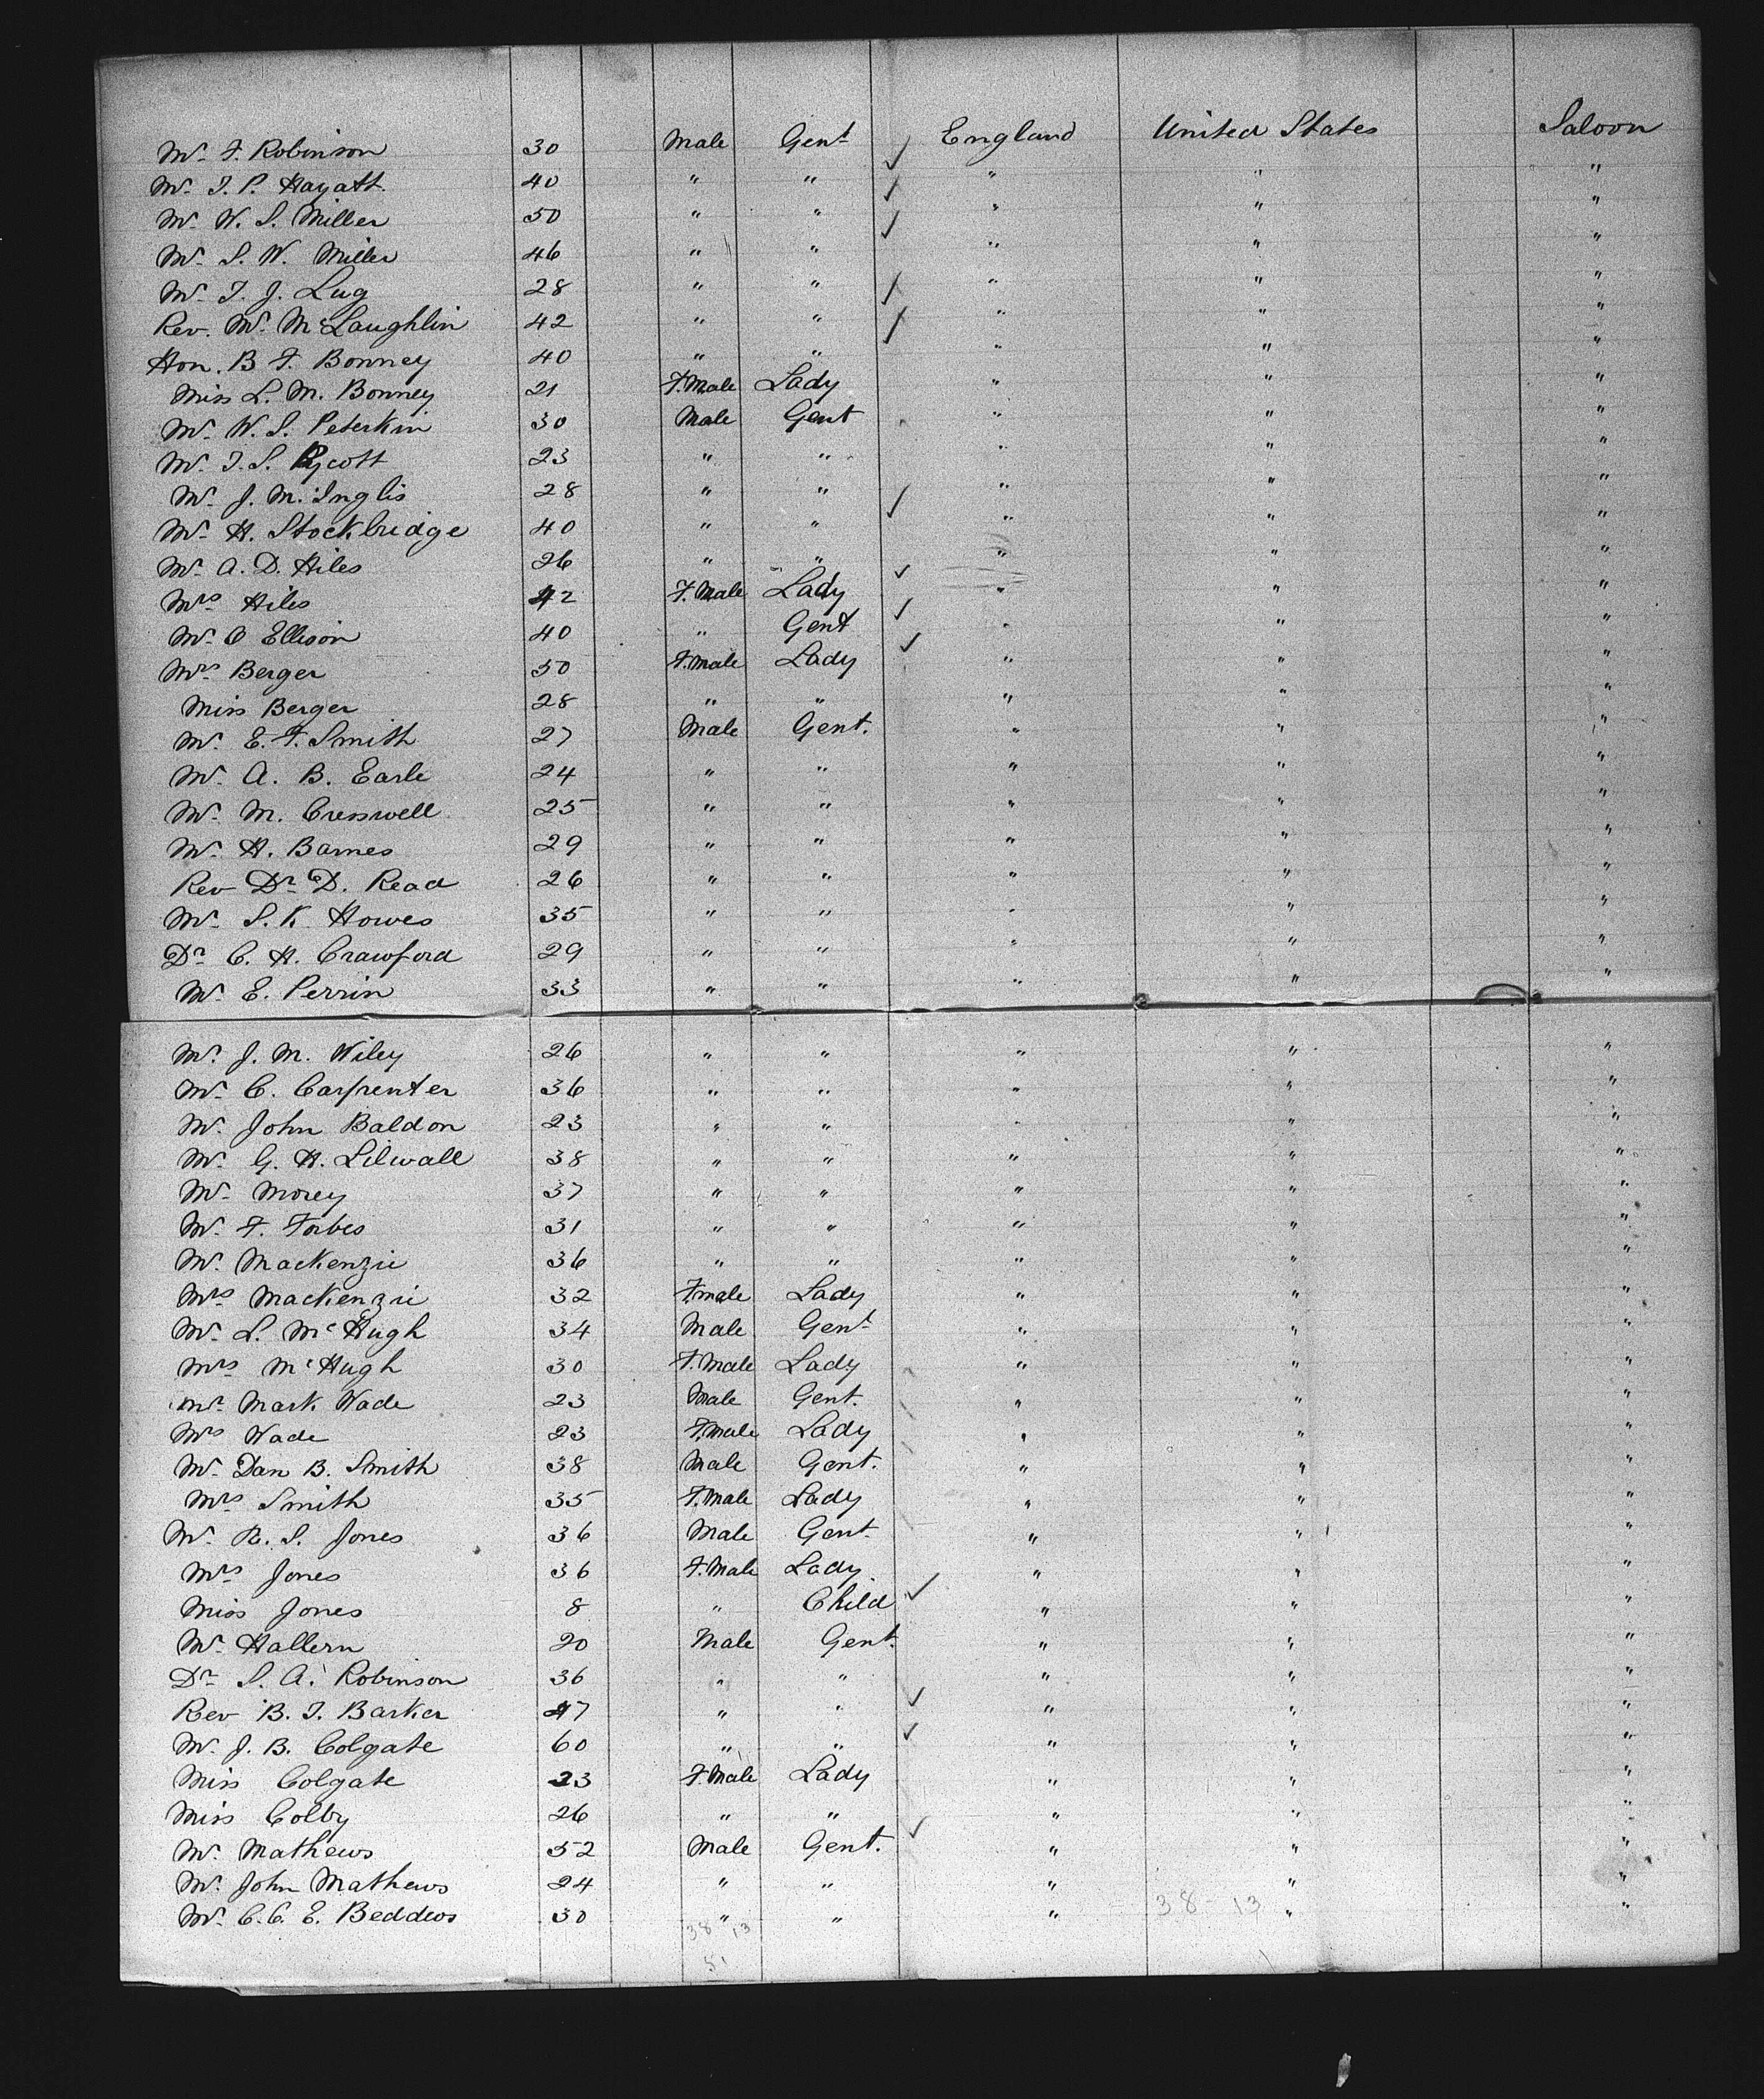 Mr. F. Robinson 30 Male Gent England United States Saloon
Mr. J. P. Hayatt. 40 " " " " "
Mr. W. S. Miller 50 " " " " "
Mr. S. W. Miller 46 " " " " "
Mr. T. J. Lug 28 " " " " "
Rev. Mr. McLaughlin 42 " " " " "
Hon. B F. Bonney 40 " " " " "
Miss L. M. Bonney 21 F.Male Lady " " "
Mr. W. S. Peterkin 30 Male Gent " " "
Mr. T. S. Rycott 23 " " " " "
Mr. J. M. Inglis 28 " " " " "
Mr. H. Stockbridge 40 " " " " "
Mr. A. D. Hiles 26 " " " " "
Mrs Hiles 42 F.Male Lady " " "
Mr. O Ellison 40 " Gent " " "
Mrs Berger 50 F.Male Lady " " "
Miss Berger 28 " " " " "
Mr. E. F. Smith 27 Male Gent. " " "
Mr. A. B. Earle 24 " " " " "
Mr. M. Cresswell 25 " " " " "
Mr. H. Barnes 29 " " " " "
Rev Dr. D. Read 26 " " " " "
Mr. S. K. Howes 35 " " " " "
Dr. C. H. Crawford 29 " " " " "
Mr. E. Perrin 33 " " " " "
Mr. J. M. Wiley 26 " " " " "
Mr. C. Carpenter 36 " " " " "
Mr. John Baldon 23 " " " " "
Mr. G. H. Lilwall 38 " " " " "
Mr. Morey 37 " " " " "
Mr. F. Forbes 31 " " " " "
Mr. Mackenzie 36 " " " " "
Mrs Mackenzie 32 F.male Lady " " "
Mr. L. McHugh 34 Male Gent " " "
Mrs McHugh 30 F.Male Lady " " "
Mr. Mark Wade 23 Male Gent. " " "
Mrs Wade 23 F.Male Lady " " "
Mr. Dan B. Smith 38 Male Gent. " " "
Mrs Smith 35 F.Male Lady " " "
Mr. R. S. Jones 36 Male Gent " " "
Mrs Jones 36 F.Male Lady " " "
Miss Jones 8 " Child " " "
Mr. Hallern 20 Male Gent. " " "
Dr. S. A. Robinson 36 " " " " "
Rev B. T. Barker 47 " " " " "
Mr. J. B. Colgate 60 " " " " "
Miss Colgate 23 F.Male Lady " " "
Miss Colby 26 " " " " "
Mr. Mathews 52 Male Gent. " " "
Mr. John Mathews 24 " " " " "
Mr. C. C. E. Beddows 30 " " " 38-13 " "
38 13
51